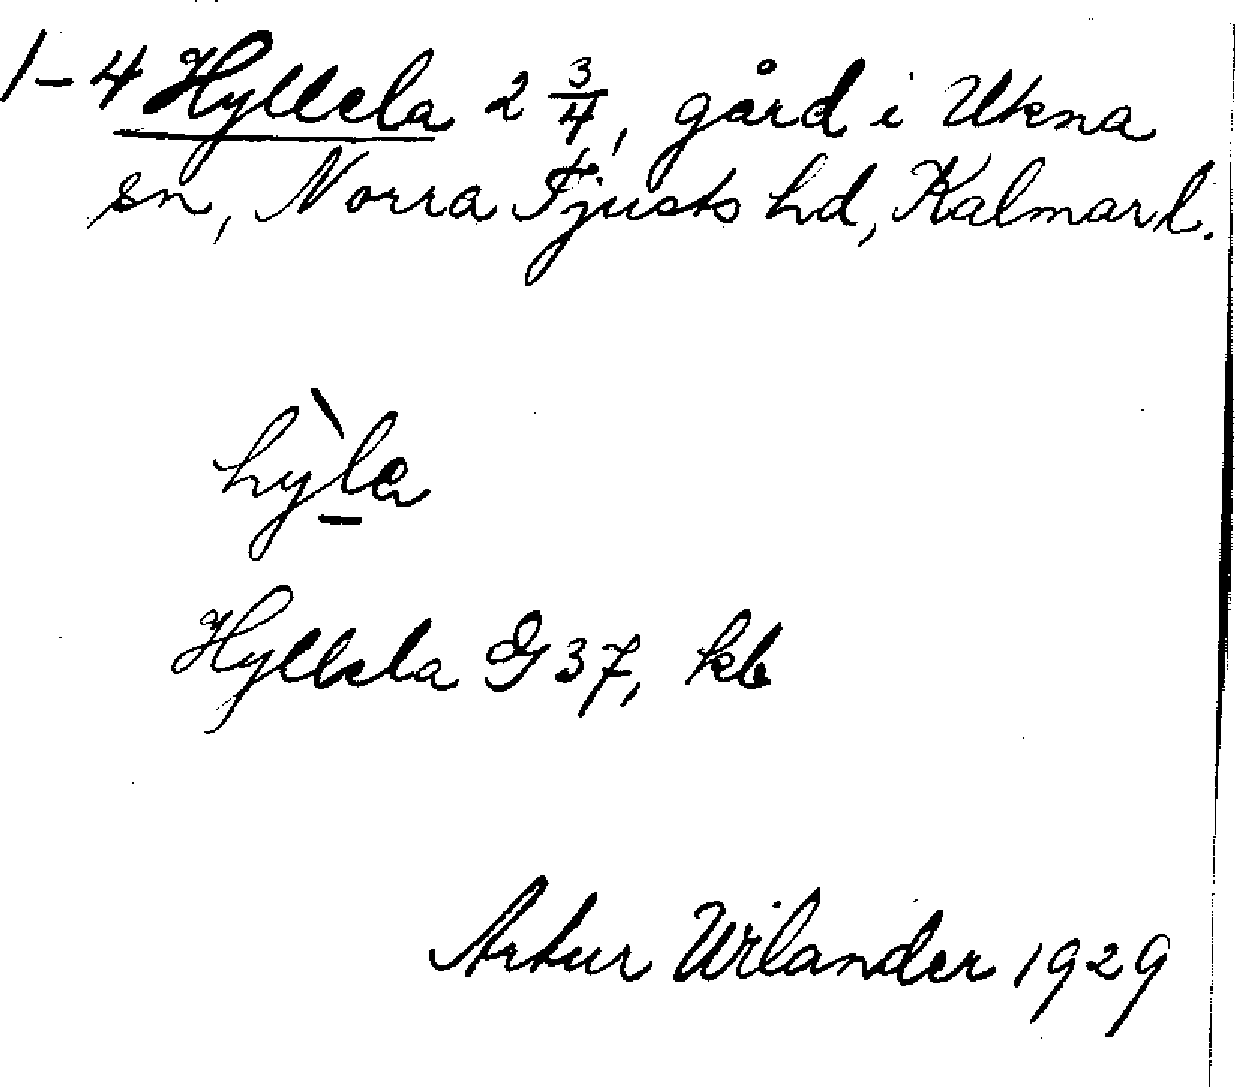 1-4 Hyllela 2 3/4, gård i Ukna
sn, Norra Tjusts hd, Kalmar l.
hỳla
Hyllela G 37, kb
Artur Wilander 1929